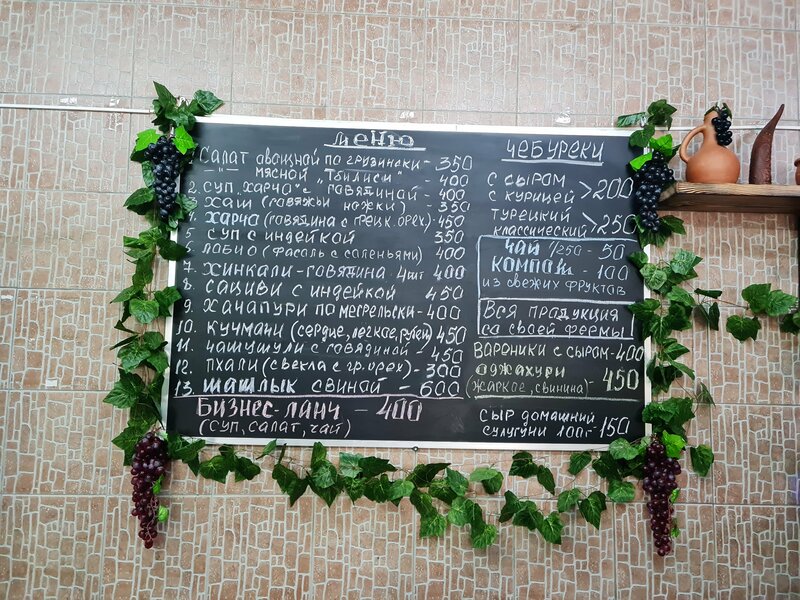 Меню
Салат овощной по грузински - 350
-"- мясной "Тбилиси" - 400
2. Суп "Харчо" с говядиной - 400
Хаш (говяжьи ножки) - 350
4. Харчо (говядина с грецк. орех) - 450
5 Суп с индейкой 350
Лобио (фасоль с соленьями) 400
7. Хинкали - говядина 4шт 400
8. Сациви с индейкой 450
9. Хачапури по мегрельски - 400
10. Кучмачи (сердце, легкое, рубец) 450
11. Чашушули с говядиной - 450
12. Пхали (свекла с гр. орех) - 300
13. Шашлык свиной - 600
Бизнес-ланч - 400
(суп, салат, чай)
Чебуреки
с сыром
с курицей > 200
турецкий
классический > 250
Чай 1/250 - 50
Компот - 100
из свежих фруктов
Вся продукция
со своей фермы!
Вареники с сыром - 400
Оджахури
(жаркое, свинина) - 450
Сыр домашний
сулугуни 100г - 150